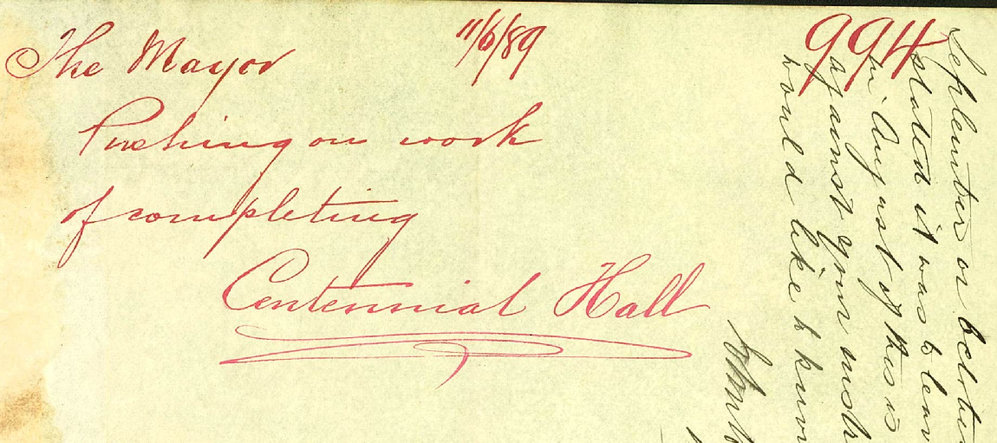 The Mayor
11/6/89
994
Pushing on work
of completing
Centennial Hall
September or
stated it was to
in August if this is
against your
would like to know